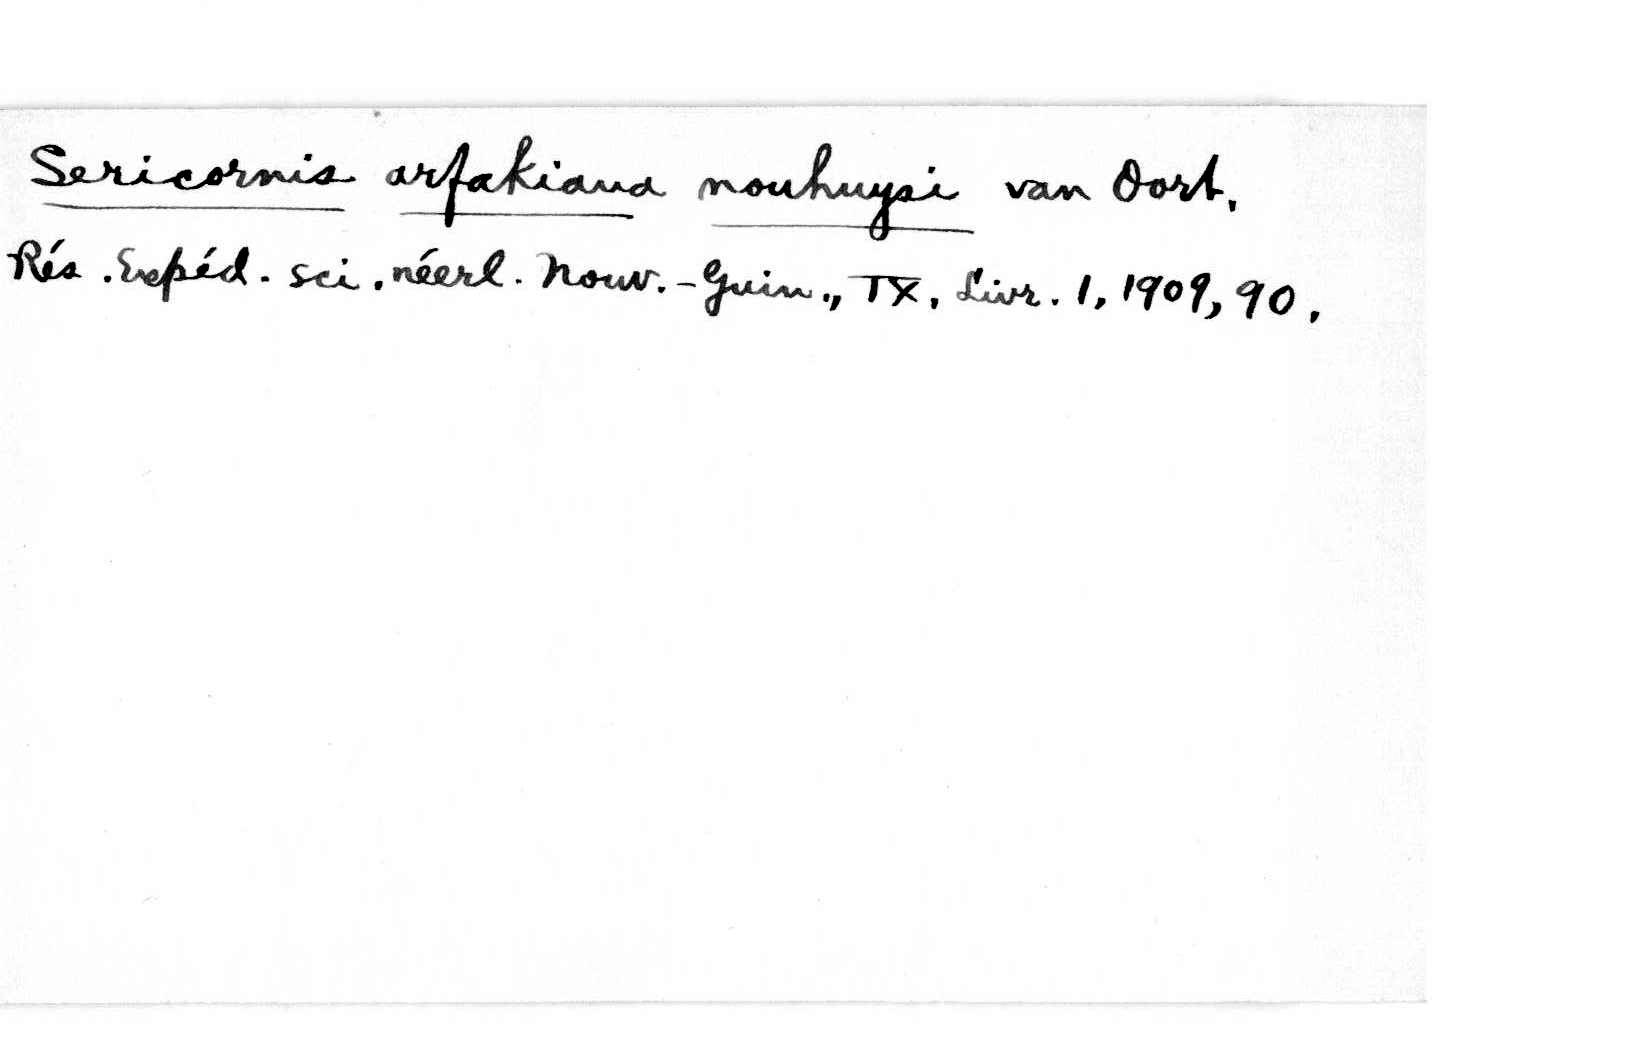 Sericornis arfakiana nouhuysi van Oort.
Rés. Expéd. sci. néerl. Nouv.-Guin., IX, Livr. 1, 1909, 90.